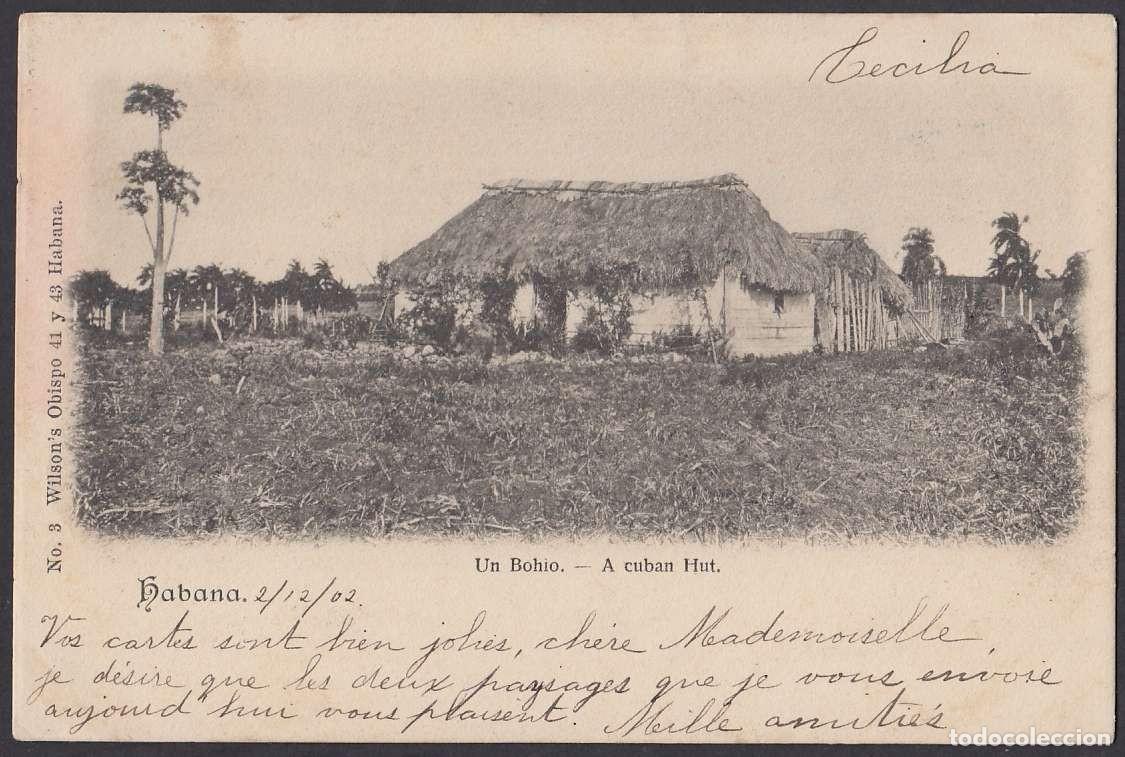 Cecilia
No. 3 Wilson's Obispo 41 y 43 Habana.
Un Bohio. — A cuban Hut.
Habana. 2/12/02.
Vos cartes sont bien jolies, chère Mademoiselle,
je désire que les deux paysages que je vous envoie
aujourd'hui vous plaisent. Mille amitiés
todocoleccion